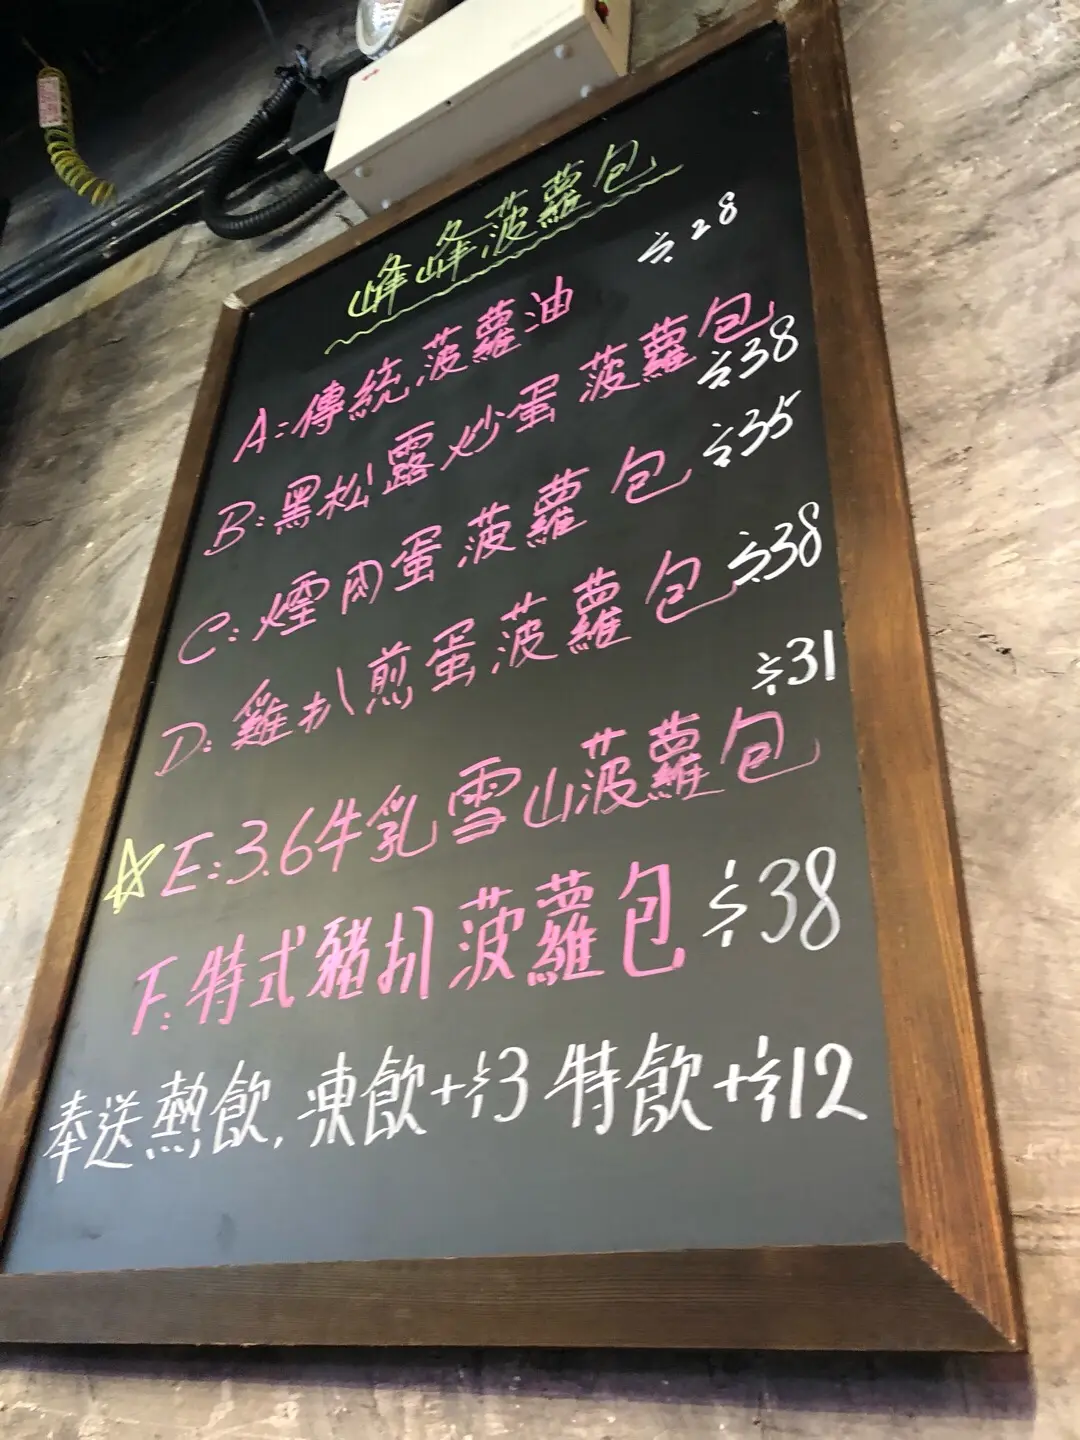 峰峰菠蘿包
A:傳統菠蘿油 $28
B:黑松露炒蛋菠蘿包 $38
C:煙肉蛋菠蘿包 $35
D:雞扒煎蛋菠蘿包 $38
☆E:3.6牛乳雪山菠蘿包 $31
F:特式豬扒菠蘿包 $38
奉送熱飲,凍飲+$3 特飲+$12